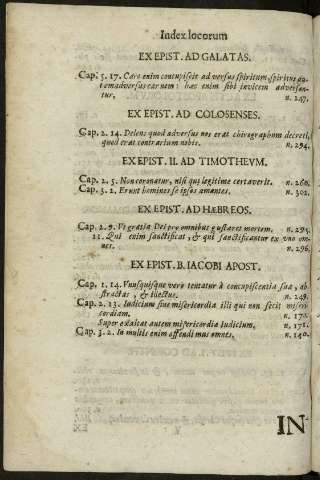 Index locorum
EX EPIST. AD GALATAS.
Cap. 5. 17. Caro enim concupiscit adversus spiritum, spiritus au-
tem adversus carnem: hæc enim sibi invicem adversan-
tur. n. 247.
EX EPIST. AD COLOSENSES.
Cap. 2. 14. Delens quod adversus nos erat chirographum decreti,
quod erat contrarium nobis. n. 294.
EX EPIST. II. AD TIMOTHEVM.
Cap. 2. 5. Non coronatur, nisi qui legitime certaverit. n. 260.
Cap. 3. 2. Erunt homines se ipsos amantes. n. 302.
EX EPIST. AD HÆBREOS.
Cap. 2. 9. Vt gratia Dei pro omnibus gustaret mortem. n. 295.
11. Qui enim sanctificat, & qui sanctificantur ex uno om-
nes. n. 296.
EX EPIST. B. IACOBI APOST.
Cap. 1. 14. Vnusquisque vero tentatur à concupiscentia sua, ab-
stractus, & illectus. n. 249.
Cap. 2. 13. Iudicium sine misericordia illi qui non fecit miseri-
cordiam. n. 170.
Super exaltat autem misericordia Iudicium. n. 171.
Cap. 3. 2. In multis enim offendimus omnes. n. 140.
IN